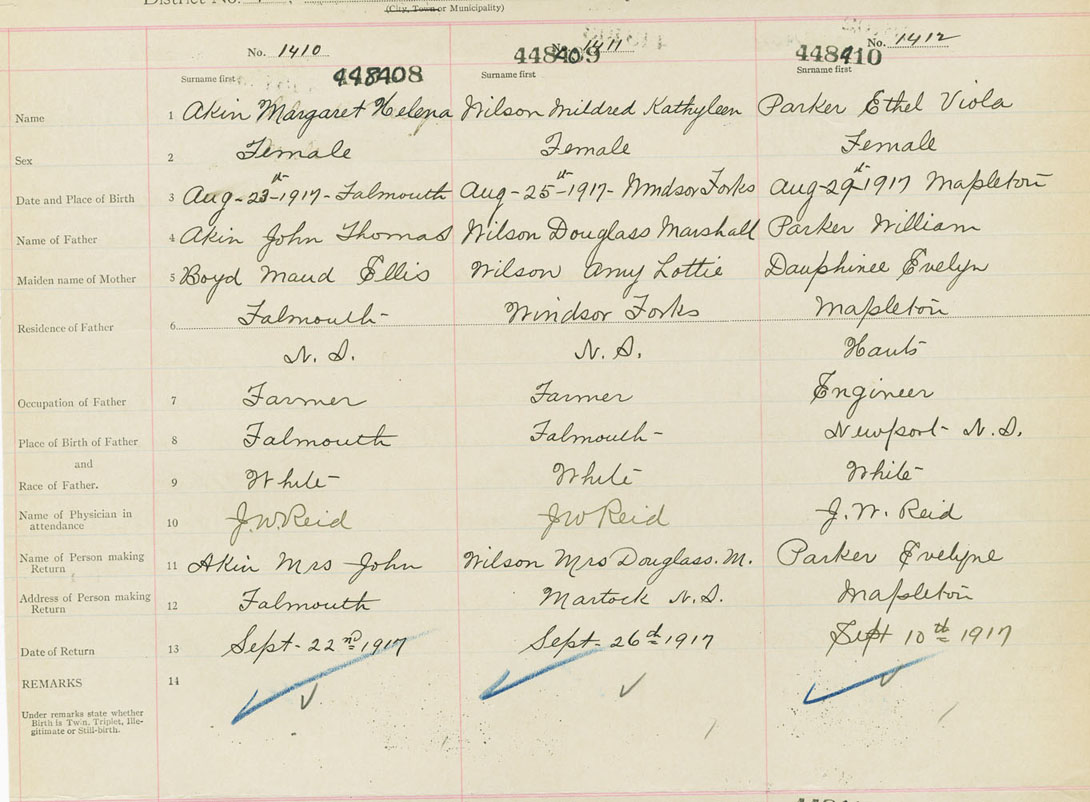 District No.
(City, Town or Municipality)
No. 1410 No. 1411 No. 1412
448408 448409 448410
Surname first Surname first Surname first
Name 1 Akin Margaret Helena Wilson Mildred Kathyleen Parker Ethel Viola
Sex 2 Female Female Female
Date and Place of Birth 3 Aug-23th-1917-Falmouth Aug-25th-1917-Windsor Forks Aug-29th 1917 Mapleton
Name of Father 4 Akin John Thomas Wilson Douglass Marshall Parker William
Maiden name of Mother 5 Boyd Maud Ellis Wilson Amy Lottie Dauphinee Evelyn
Residence of Father 6 Falmouth Windsor Forks Mapleton
N. S. N. S. Hants
Occupation of Father 7 Farmer Farmer Engineer
Place of Birth of Father 8 Falmouth Falmouth Newport N.S.
and
Race of Father. 9 White White White
Name of Physician in attendance 10 J.W. Reid J W Reid J. W. Reid
Name of Person making Return 11 Akin Mrs John Wilson Mrs Douglass. M. Parker Evelyne
Address of Person making Return 12 Falmouth Martock N.S. Mapleton
Date of Return 13 Sept-22nd 1917 Sept-26th 1917 Sept 10th 1917
REMARKS 14
Under remarks state whether
Birth is Twin, Triplet, Ille-
gitimate or Still-birth.